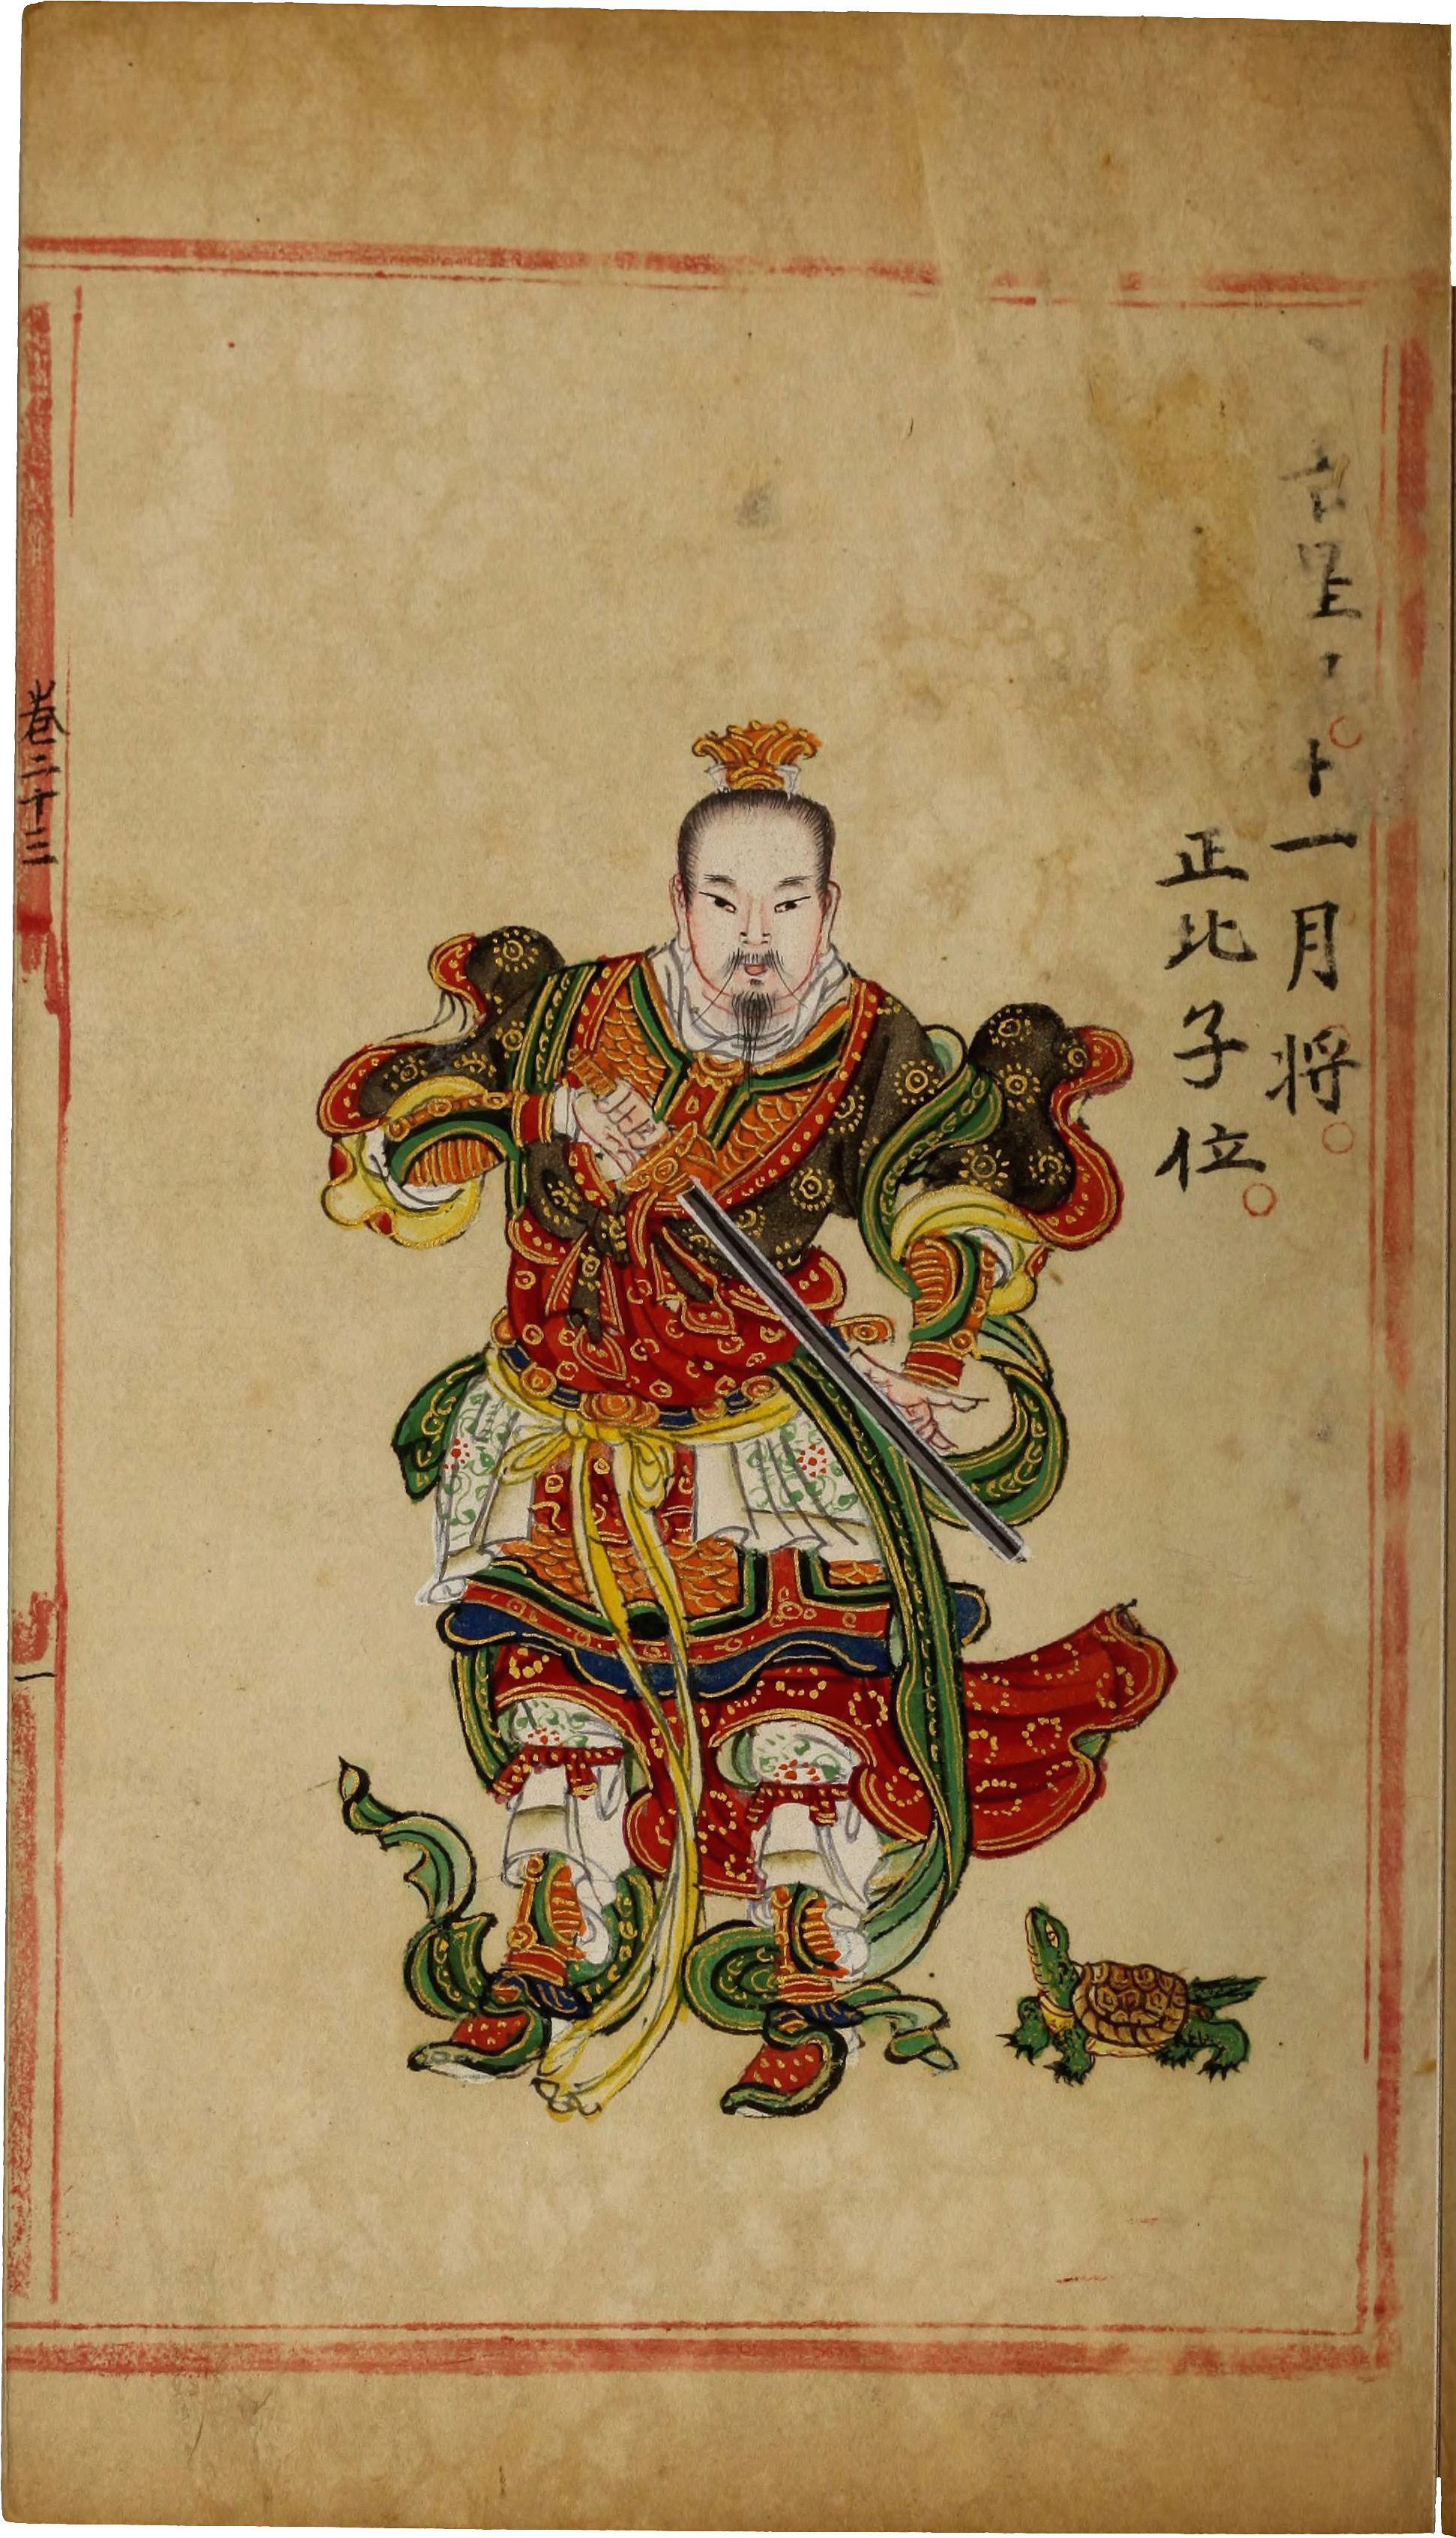 十一月将
正北子位
卷二十三
一